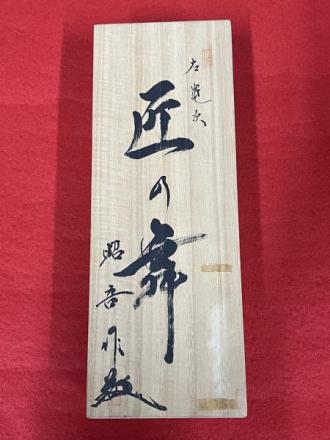 左亀次
匠の舞
昭吾作